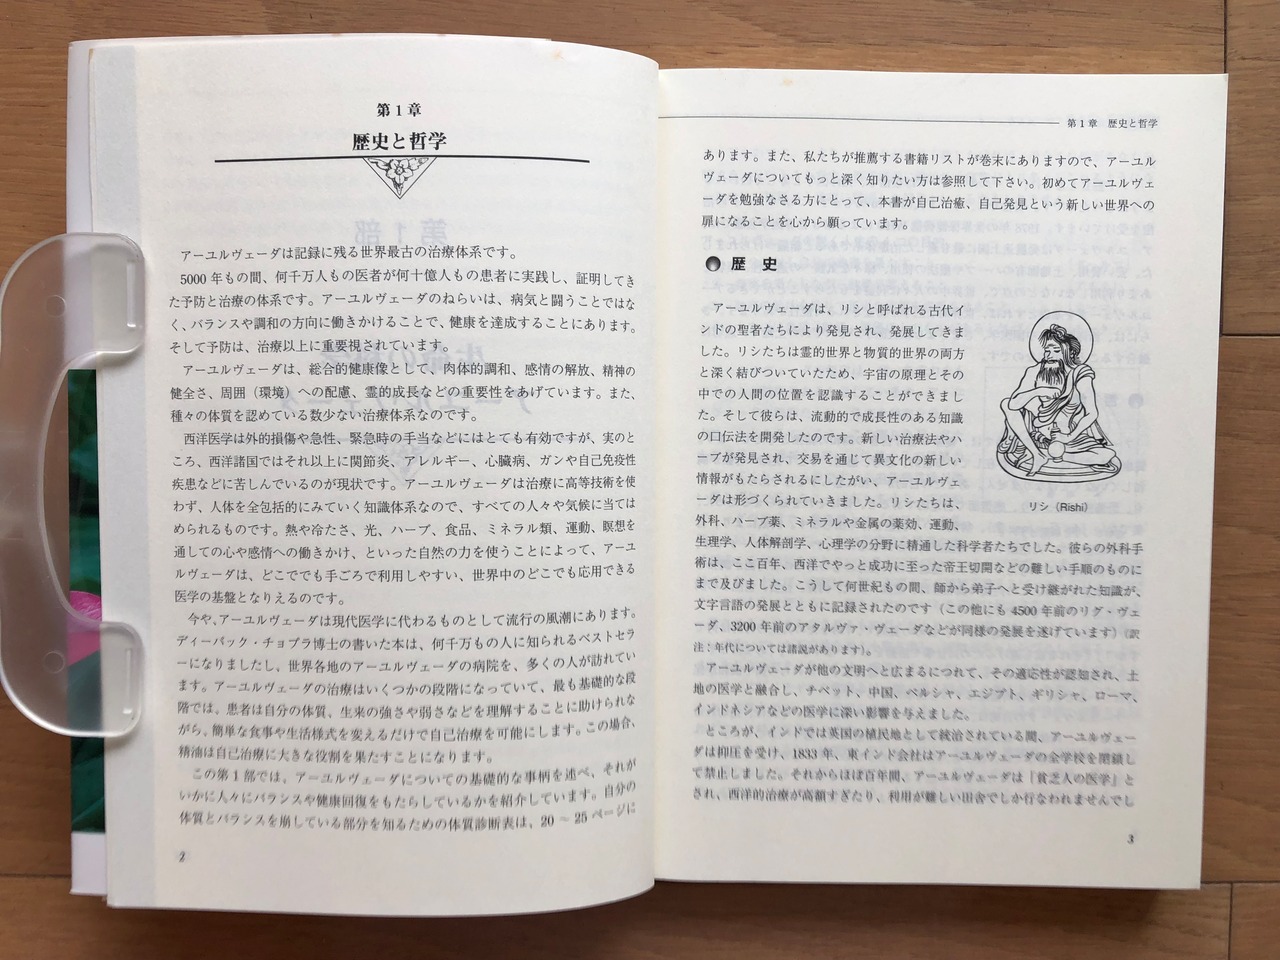 第1章
歴史と哲学
アーユルヴェーダは記録に残る世界最古の治療体系です。
5000年もの間、何千万人もの医者が何十億人もの患者に実践し、証明してき
た予防と治療の体系です。アーユルヴェーダのねらいは、病気と闘うことではな
く、バランスや調和の方向に働きかけることで、健康を達成することにあります。
そして予防は、治療以上に重要視されています。
アーユルヴェーダは、総合的健康像として、肉体的調和、感情の解放、精神の
健全さ、周囲（環境）への配慮、霊的成長などの重要性をあげています。また、
種々の体質を認めている数少ない治療体系なのです。
西洋医学は外的損傷や急性、緊急時の手当などにはとても有効ですが、実のと
ころ、西洋諸国ではそれ以上に関節炎、アレルギー、心臓病、ガンや自己免疫性
疾患などに苦しんでいるのが現状です。アーユルヴェーダは治療に高等技術を使
わず、人体を全包括的にみていく知識体系なので、すべての人々や気候に当ては
められるものです。熱や冷たさ、光、ハーブ、食品、ミネラル類、運動、瞑想を
通しての心や感情への働きかけ、といった自然の力を使うことによって、アーユ
ルヴェーダは、どこででも手ごろで利用しやすい、世界中のどこでも応用できる
医学の基盤となりえるのです。
今や、アーユルヴェーダは現代医学に代わるものとして流行の風潮にあります。
ディーパック・チョプラ博士の書いた本は、何千万もの人に知られるベストセラ
ーになりましたし、世界各地のアーユルヴェーダの病院を、多くの人が訪れてい
ます。アーユルヴェーダの治療はいくつかの段階になっていて、最も基礎的な段
階では、患者は自分の体質、生来の強さや弱さなどを理解することに助けられな
がら、簡単な食事や生活様式を変えるだけで自己治療を可能にします。この場合、
精油は自己治療に大きな役割を果たすことになります。
この第1部では、アーユルヴェーダについての基礎的な事柄を述べ、それが
いかに人々にバランスや健康回復をもたらしているかを紹介しています。自分の
体質とバランスを崩している部分を知るための体質診断表は、20〜25ページに
2
第1章　歴史と哲学
あります。また、私たちが推薦する書籍リストが巻末にありますので、アーユル
ヴェーダについてもっと深く知りたい方は参照して下さい。初めてアーユルヴェ
ーダを勉強なさる方にとって、本書が自己治癒、自己発見という新しい世界への
扉になることを心から願っています。
歴　史
アーユルヴェーダは、リシと呼ばれる古代イ
ンドの聖者たちにより発見され、発展してきま
した。リシたちは霊的世界と物質的世界の両方
と深く結びついていたため、宇宙の原理とその
中での人間の位置を認識することができまし
た。そして彼らは、流動的で成長性のある知識
の口伝法を開発したのです。新しい治療法やハ
ーブが発見され、交易を通じて異文化の新しい
情報がもたらされるにしたがい、アーユルヴェ
ーダは形づくられていきました。リシたちは、
リシ（Rishi）
外科、ハーブ薬、ミネラルや金属の薬効、運動、
生理学、人体解剖学、心理学の分野に精通した科学者たちでした。彼らの外科手
術は、ここ百年、西洋でやっと成功に至った帝王切開などの難しい手順のものに
まで及びました。こうして何世紀もの間、師から弟子へと受け継がれた知識が、
文字言語の発展とともに記録されたのです（この他にも4500年前のリグ・ヴェ
ーダ、3200年前のアタルヴァ・ヴェーダなどが同様の発展を遂げています）（訳
注：年代については諸説があります）。
アーユルヴェーダが他の文明へと広まるにつれて、その適応性が認知され、土
地の医学と融合し、チベット、中国、ペルシャ、エジプト、ギリシャ、ローマ、
インドネシアなどの医学に深い影響を与えました。
ところが、インドでは英国の植民地として統治されている間、アーユルヴェー
ダは抑圧を受け、1833年、東インド会社はアーユルヴェーダの全学校を閉鎖し
て禁止しました。それからほぼ百年間、アーユルヴェーダは「貧乏人の医学」と
され、西洋的治療が高額すぎたり、利用が難しい田舎でしか行なわれませんでし
3